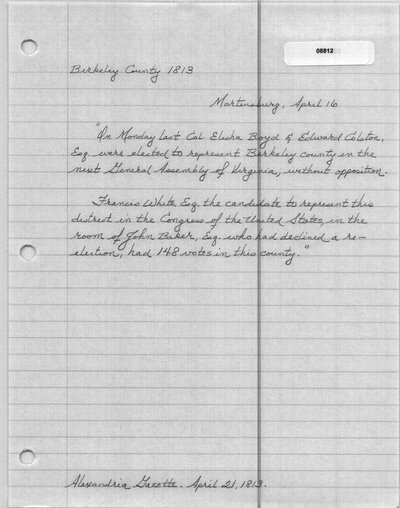 08812
Berkeley County 1813
Martinsburg, April 16
"On Monday last Col. Elisha Boyd & Edward Colston,
Esq. were elected to represent Berkeley county in the
next General Assembly of Virginia, without opposition.
Francis White Esq. the candidate to represent this
district in the Congress of the United States, in the
room of John Baker, Esq. who had declined a re-
election, had 148 votes in this county."
Alexandria Gazette, April 21, 1813.